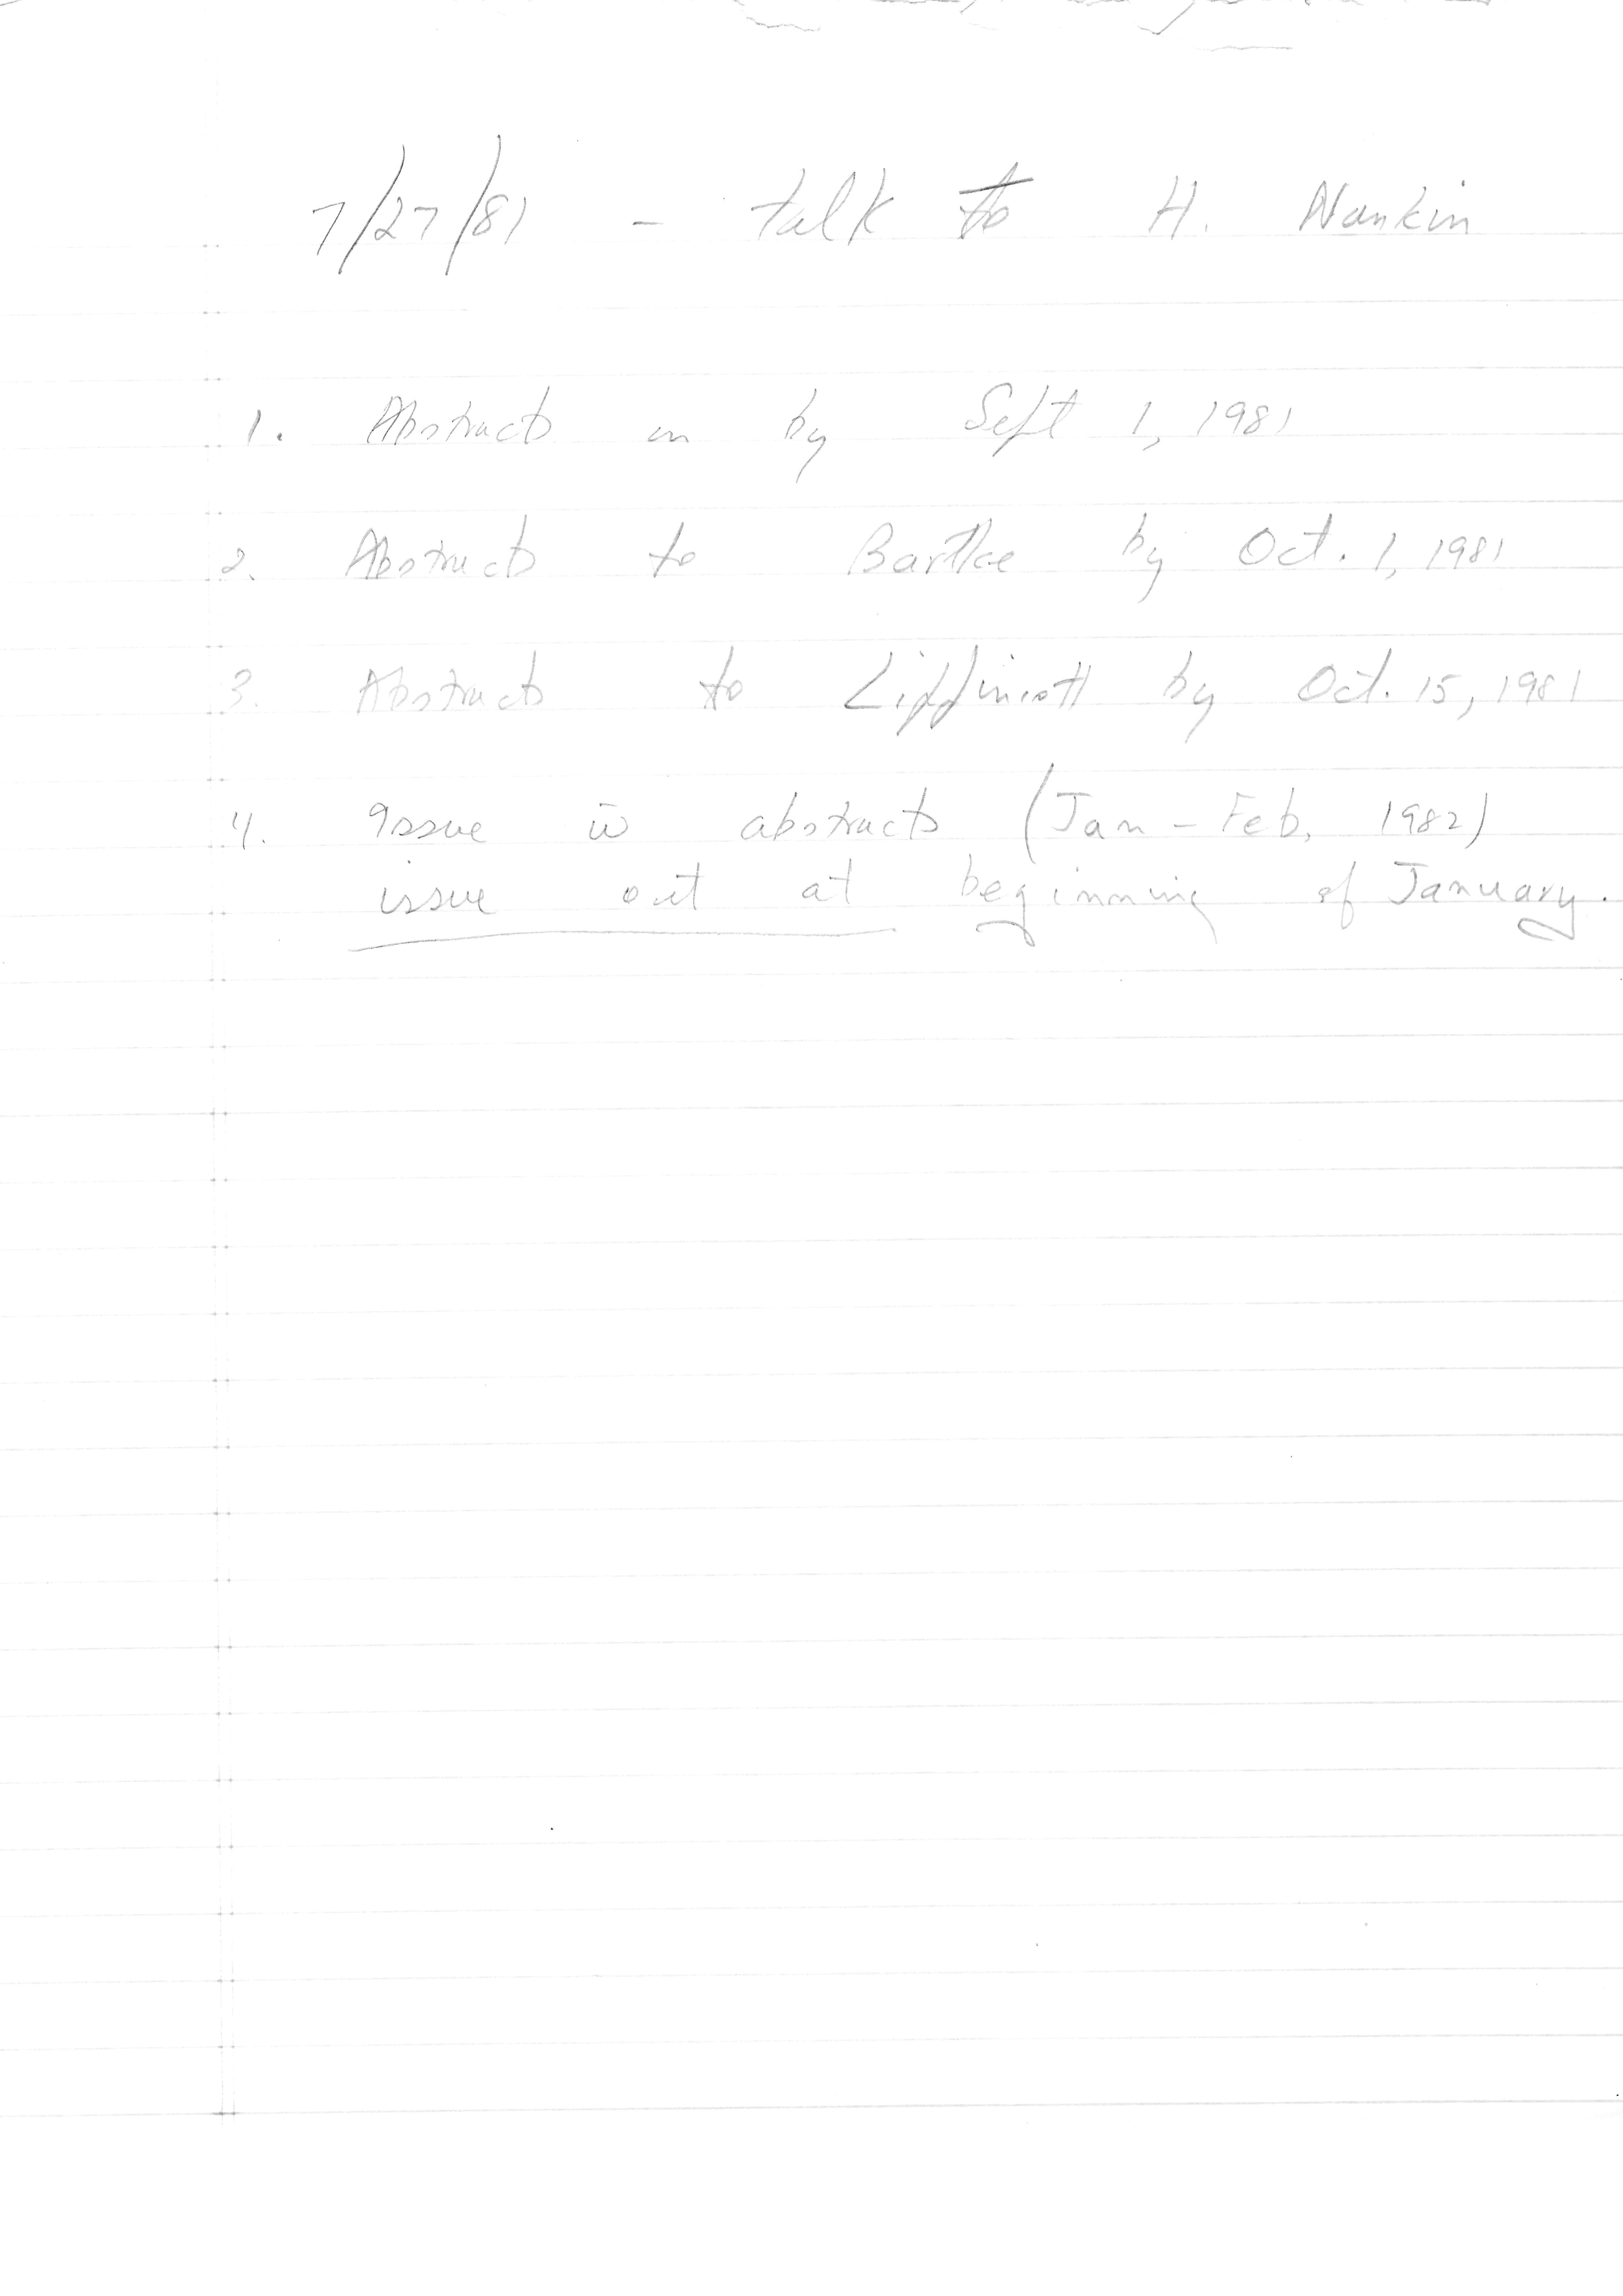 7/27/81 - talk to H. Nankin
1. Abstracts in by Sept 1, 1981
2. Abstracts to Bartke by Oct. 1, 1981
3. Abstracts to Lippincott by Oct. 15, 1981
4. Issue w̄ abstracts (Jan - Feb, 1982)
issue out at beginning of January.